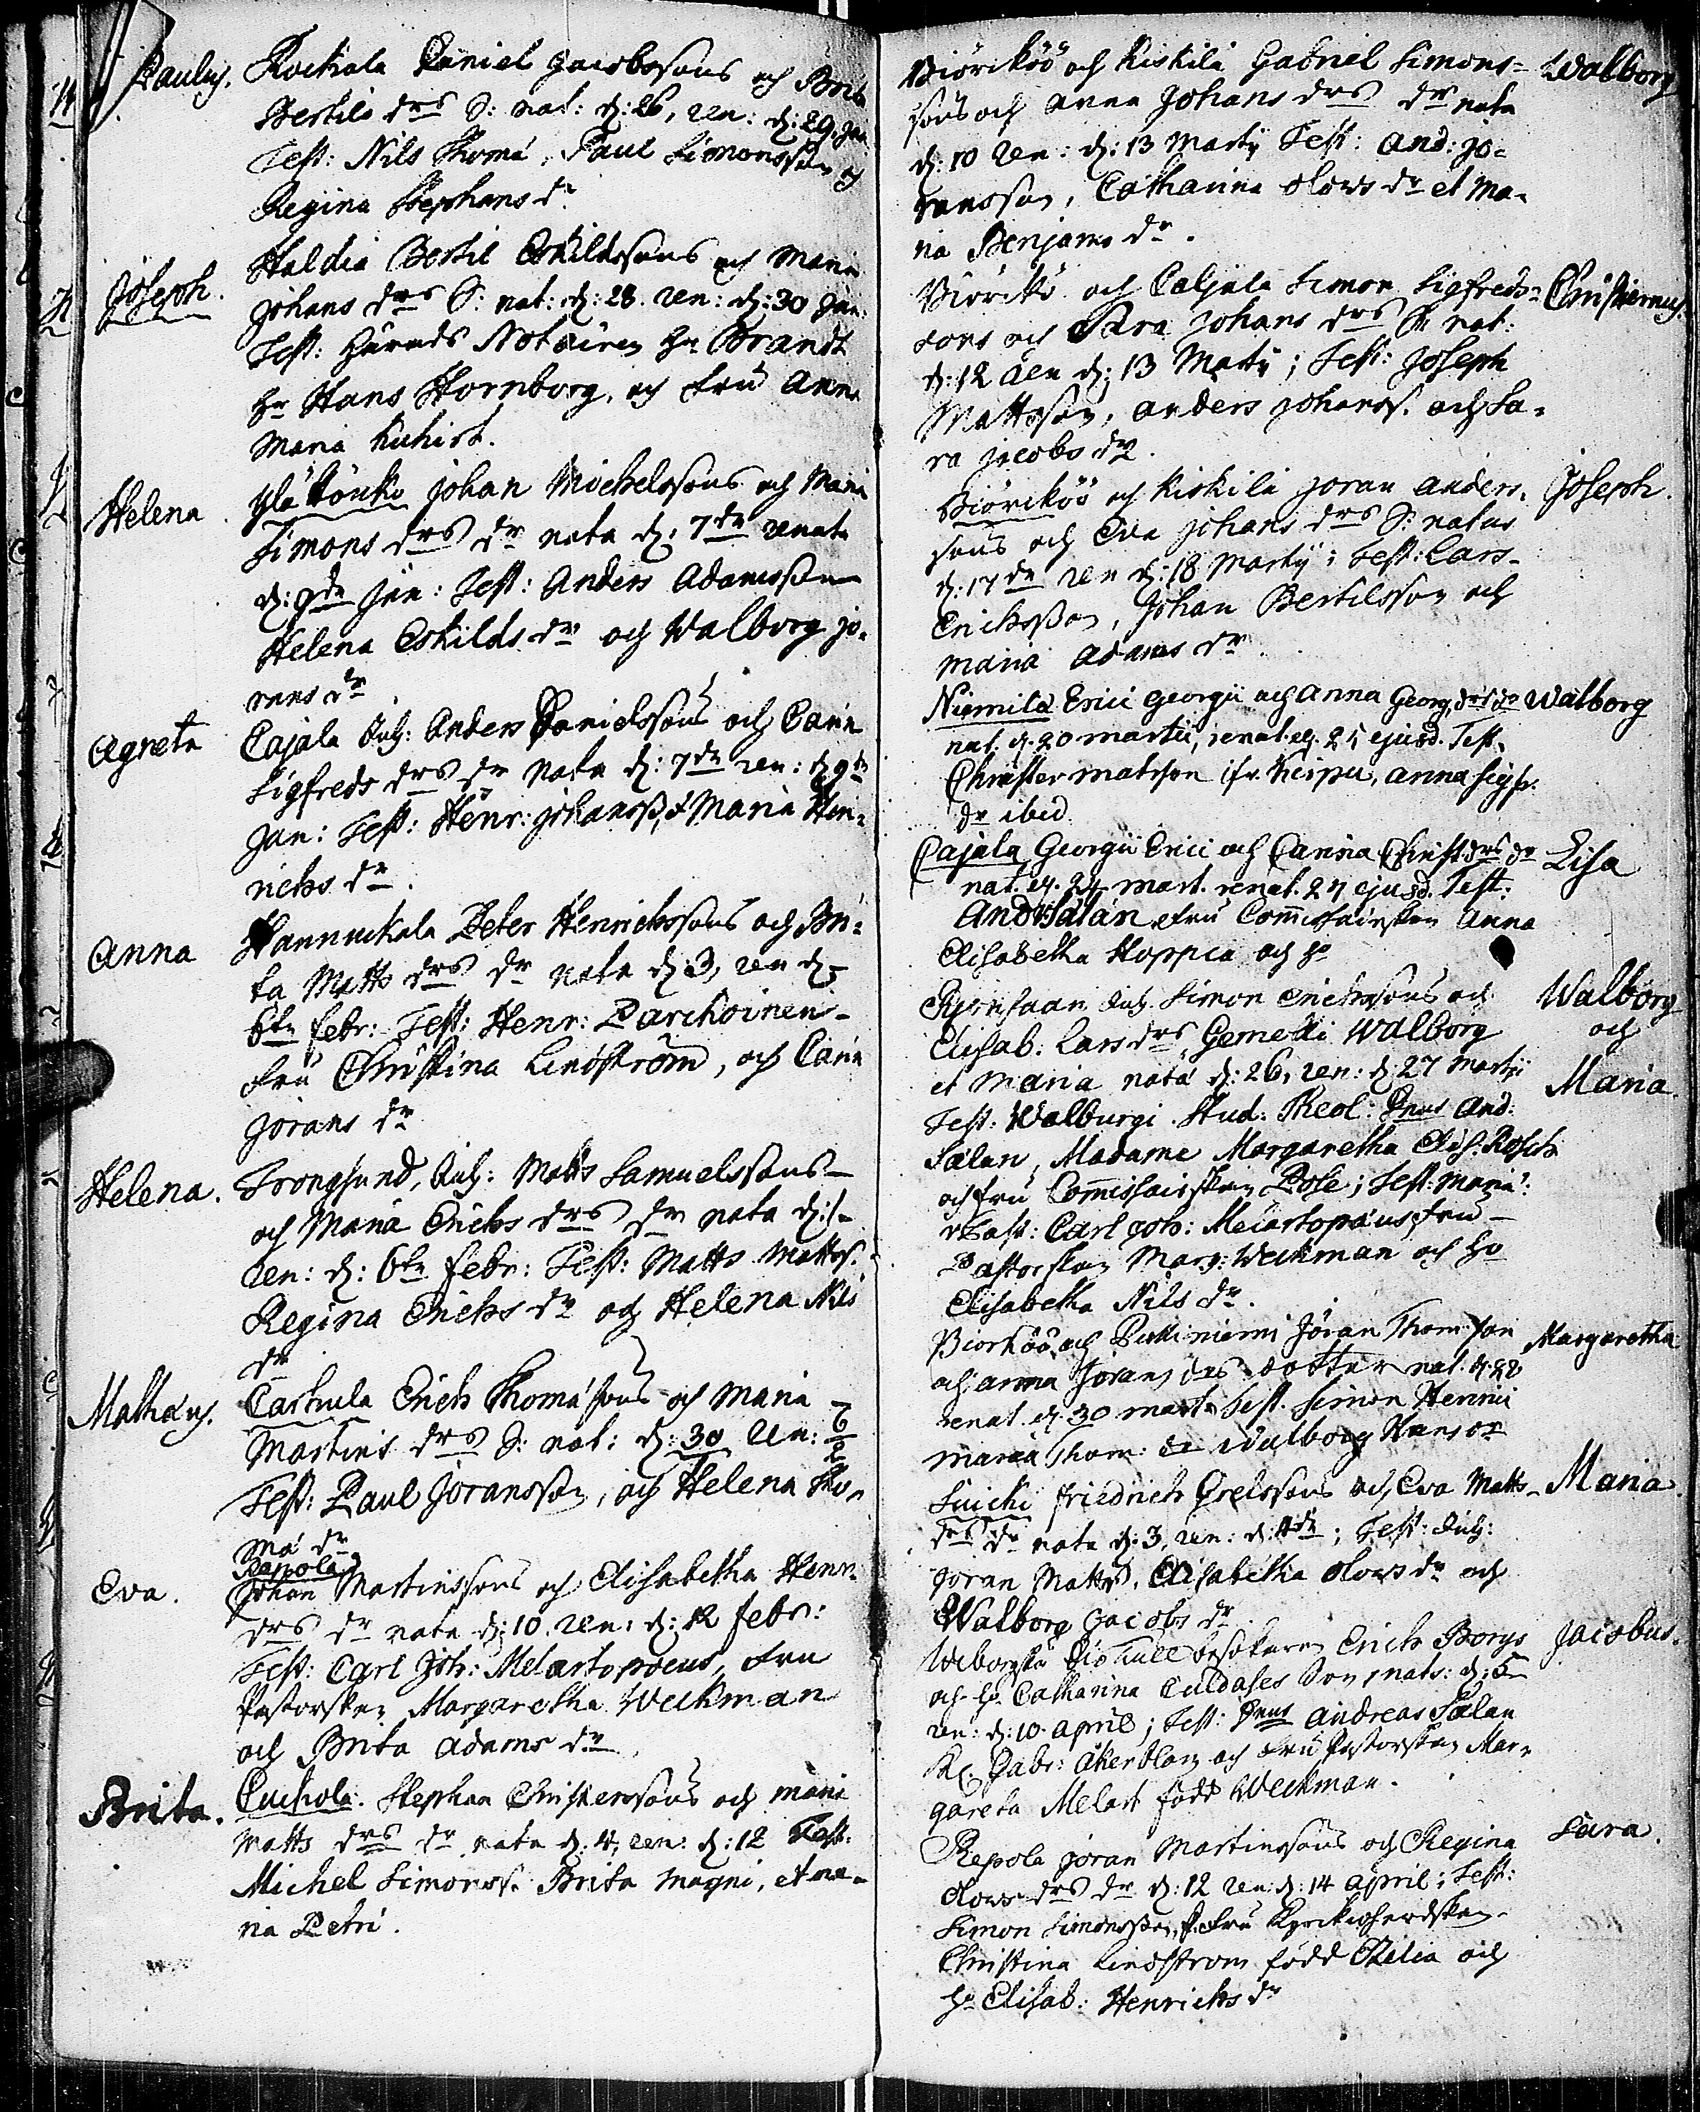 Paulus.
Rockala Daniel Jacobssons och Brita
Bertils drs S: nat: d: 26, ren: d: 29. Jan
Test: Nils Thomæ, Paul Simonsson och
Regina Stephans dr
Joseph.
Haldia Bertil Eskildssons och Maria
Johans drs S: nat: d: 28. ren: d: 30 Jan:
Test: Härads Notarien Hr Brandt
Hr Hans Hornborg, och fru Anna
Maria
Helena
Ylä Kouko Johan Michelssons och Maria
Simons drs dr nata d: 7de renata
d: 9de Jan: Test: Anders Adamsson
Helena Eskilds dr och Walborg Jö-
rans dr
Agneta
Cajala Anders Danielssons och Carin
Sigfreds drs dr nata d: 7de ren: d 9de
Jan: Test: Henr: Johanss, et Maria Hen-
richs dr.
Anna
Hannukala Peter Henrichssons och Bri-
ta Matts drs dr nata d: 3, ren d:
6te Febr: Test: Henr: Parckoinen
fru Christina Lindström, och Carin
Jörans dr
Helena.
Trongsund, Matts Samuelssons
och Maria Erichs drs dr nata d: 1
ren: d: 6te Febr: Test: Matts Mattss.
Regina Erichs dr och Helena Nils
dr
Mathæus.
Erich Thomæsons och Maria
Martins drs S: nat: d: 30 ren: 6/2
Test: Paul Joransson, och Helena Tho-
mæ dr
Eva.
Rapola
Johan Martinssons och Elisabetha Henr:
drs dr nata d: 10. ren: d: 12 Febr:
Test: Carl Joh: Melartopoeus, fru
Pastorskan Margaretha Weckman
och Brita Adams dr
Brita.
Stephan Christerssons och Maria
Matts drs dr nata d: 4, ren: d: 12 Test:
Michel Simonss. Brita Magni, et Ma-
ria Petri.
Biörcköö och Kiskilä Gabriel Simons-
sons och Anna Johans drs dr nata
d: 10 ren: d: 13 Martij Test: And: Jö-
ransson, Catharina Olows dr et Ma-
ria Benjams dr.
Walborg
Biörckö och Caljala Simon Sigfreds-
sons och Sara Johans drs S: nat:
d: 12 ren d: 13 Martij; Test: Joseph
Mattsson, Anders Johanss. och Sa-
ra Jacobs dr.
Christiernus.
Biörcköö och Kiskilä Joran Anders-
sons och Eva Johans drs S: natus
d: 17de ren d: 18 Martij; Test: Lars
Erichsson, Johan Bertilsson och
Maria Adams dr
Joseph.
Niemilä Erici Georgii och Anna Georg. drs dr
nat. d. 20 martii, renat. d. 25 ejusd. Test.
Christer matsson ifr. Keipu, anna Sigfr.
dr ibid.
Walborg
Cajala Georgii Erici och Carina Christ drs dr
nat. d. 24 mart. renat. 27 ejusd. Test.
And Sälan fru Commissairskan Anna
Elisabetha Hoppia och Ho
Lisa
Simon Erichssons och
Elisab: Lars drs, Gemelli Walborg
et Maria nata d: 26, ren: d: 27 Martij
Test: Walburgi Stud: Theol: Dnus And:
Sælan, Madame Margaretha Elis: Rosch
och fru Commissairskan Pole; Test: Mariæ:
Carl Joh: Melartopæus, fru
Pastorskan Marg: Weckman och Ho
Elisabetha Nils dr.
Walborg
och
Maria.
Biorköö och Joran Thomsson
och anna Jörans drs dotter nat. d. 28
renat. d. 30 mart. Test. Simon Henrici
maria Thom: dr walborg Hans dr
Margaretha
Suicki Friedrich Grelssons och Eva Matts
drs dr nata d: 3, ren: d: 4de; Test:
Joran Mattss, Elisabetha Olows dr och
Walborg Jacobs dr
Maria.
Wiborgska Siö Tull besökaren Erich Borgs
och Ho Catharina Culdases Son, nat: d: 5
ren: d: 10. April; Test: Dnus Andreas Sælan
Gabr: Åkerblom och fru Pastorskan Mar-
gareta Melart född Weckman.
Jacobus.
Repola Joran Martinssons och Regina
Olows drs dr d: 12 ren: d: 14 April; Test:
Simon Simonsson, fru Kyrckioherdskan
Christina Lindstrom född och
Ho Elisab: Henrichs dr
Sara.